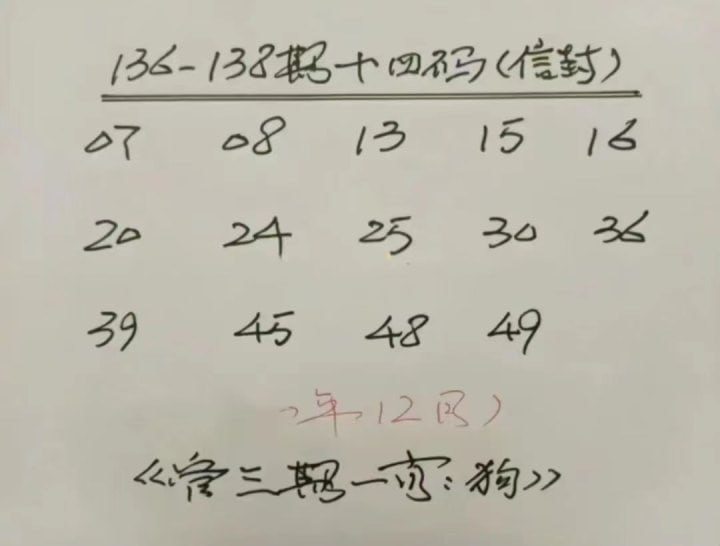 136-138期十四码(信封)
07 08 13 15 16
20 24 25 30 36
39 45 48 49
年12
《管三期一肖:狗》